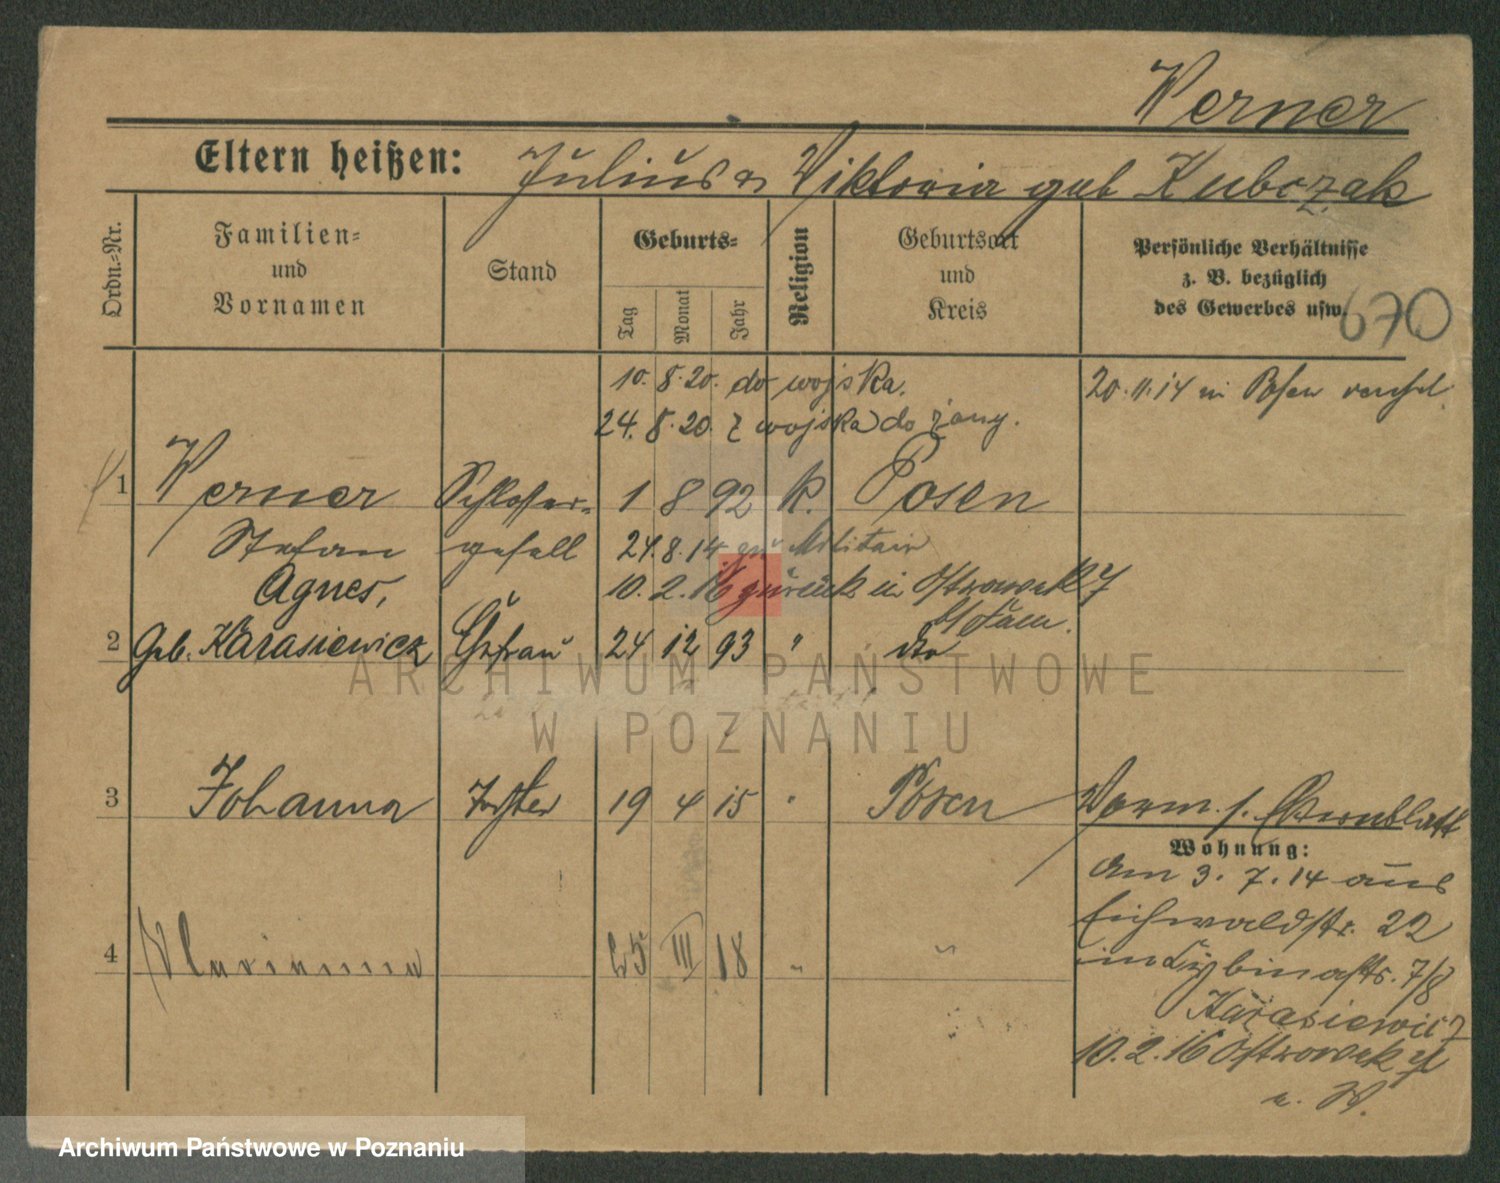 Werner
Eltern heißen: Julius u Wiktoria geb Kubczak
Ordn.-Nr.
Familien- und Vornamen
Stand
Geburts-
Tag Monat Jahr
Religion
Geburtsort und Kreis
Persönliche Verhältnisse
z. B. bezüglich
des Gewerbes usw.
670
10. 8. 20. do wojska.
20.11.14 in Posen
24. 8. 20. z wojska do żony.
1 Werner Schlosser- 1 8 92 k. Posen
Stefan gesell 24.8.14 zu Militair
Agnes, 10. 2. 16 zurück in Ostrowek 7
2 Geb. Karasiewicz Ehefrau 24 12 93 " dto
ARCHIWUM PAŃSTWOWE
W POZNANIU
3 Johanna Tochter 19 4 15 " Posen
Wohnung:
am 3. 7. 14 aus
Eichwaldstr. 22
4 Marianna 25 III 18 " "
in Lybinastr. 7/8
Karasiewicz
10. 2. 16 Ostrowek 7
Archiwum Państwowe w Poznaniu